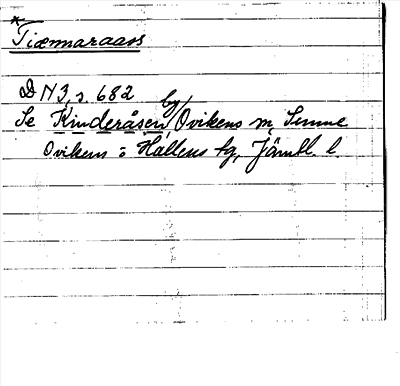 *Tiænnaraass
DN 3, s. 682
Se Kinderåsen, by, Ovikens sn, Sunne
Ovikens o Hallens tg, Jämtl. l.